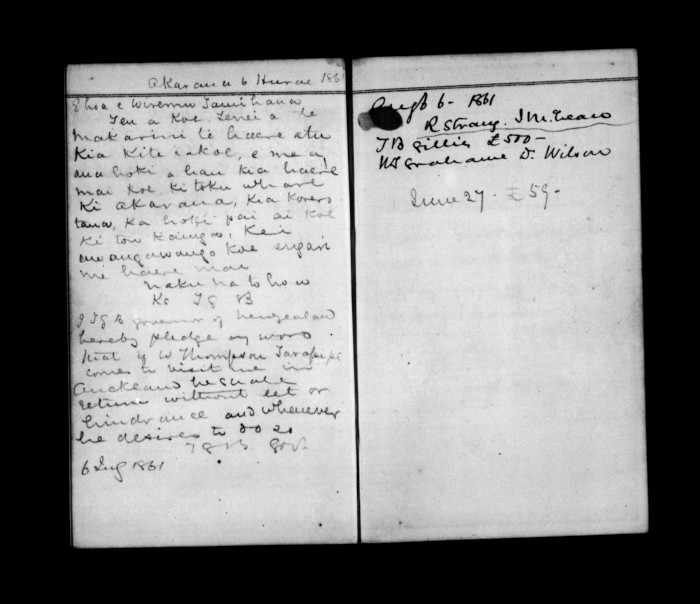 Akarana 6 Hurae 1861
Ehoa e Wiremu Tamihana
Tena Koe. Tenei a te
Makarini te haere atu
Kia Kite i a koe, e mea
ana hoki a hau kia haere
mai koe ki toku whare
Ki Akarana, Kia Korero
taua, Ka hoki pai ai koe
Ki tou Kainga, Kei
awangawanga koe engari
me haere mai
Naku na to hoa
T G B
I T G B governor of Newzealand
hereby pledge my word
that if W Thompson Tarapipi
comes to visit me in
Auckland he shall
return without let or
hindrance and whenever
he desires to do so
T G B Gov.
6 July 1861
6 - 1861
R Strang. J McLean
T B Gillies £500 -
Grahame D. Wilson
June 27 - £59 -